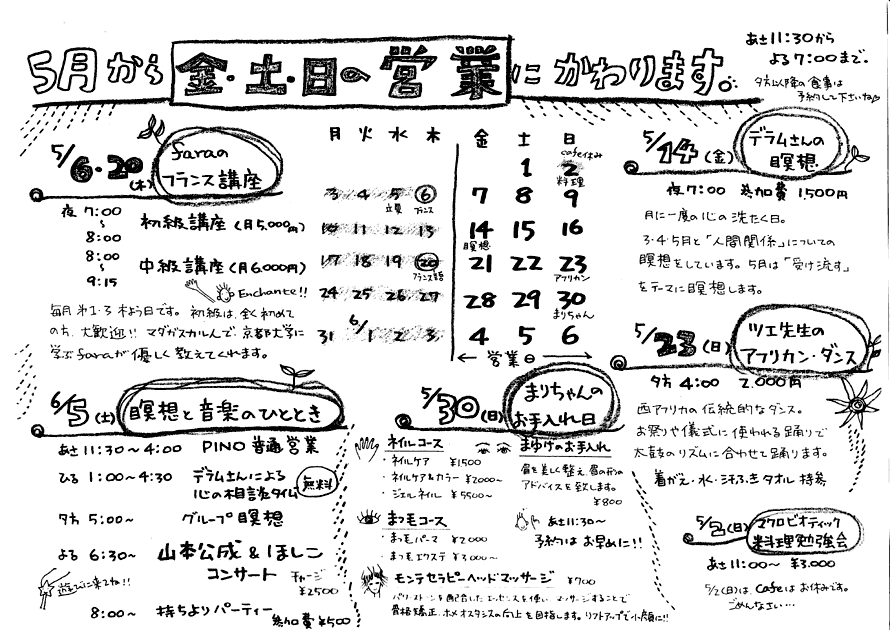 5月から金・土・日の営業にかわります。
あさ11:30から
よる7:00まで。
夕方以降の食事は
予約して下さいね
5/6・20(木) faraの
フランス講座
夜7:00
〜
8:00
初級講座(月5,000円)
8:00
〜
9:15
中級講座(月6,000円)
Enchante!!
毎月第1・3木よう日です。初級は、全く初めて
の方、大歓迎!!マダガスカルんで、京都大学に
学ぶfaraが優しく教えてくれます。
月 火 水 木 金 土 日
cafe休み
1 2
料理
3 4 5 6 7 8 9
フランス
10 11 12 13 14 15 16
瞑想
17 18 19 20 21 22 23
フランス語 アフリカン
24 25 26 27 28 29 30
まりちゃん
31 6/1 2 3 4 5 6
← 営業日 →
5/14(金) デラムさんの
瞑想
夜7:00 参加費1,500円
月に一度の心の洗たく日。
3・4・5月と「人間関係」についての
瞑想をしています。5月は「受け流す」
をテーマに瞑想します。
5/23(日) ツエ先生の
アフリカン・ダンス
夕方4:00 2,000円
西アフリカの伝統的なダンス。
お祭りや儀式に使われる踊りで
太鼓のリズムに合わせて踊ります。
着がえ・水・汗ふきタオル 持参
5/2(日) マクロビオティック
料理勉強会
あさ11:00〜 ¥3,000
5/2(日)は、Cafeはお休みです。
ごめんなさい…
6/5(土) 瞑想と音楽のひととき
あさ11:30〜4:00 PINO普通営業
ひる1:00〜4:30 デラムさんによる
心の相談タイム 無料
夕方5:00〜 グループ瞑想
よる6:30〜 山本公成&ほしこ
コンサート チャージ
¥2500
遊びに来てね!!
8:00〜 持ちよりパーティー
参加費¥500
5/30(日) まりちゃんの
お手入れ日
ネイルコース
・ネイルケア ¥1500
・ネイルケア&カラー ¥2000〜
・ジェルネイル ¥5500〜
まゆげのお手入れ
眉を美しく整え、眉の形の
アドバイスを致します。
¥800
まつ毛コース
・まつ毛パーマ ¥2000
・まつ毛エクステ ¥3000〜
あさ11:30〜
予約はお早めに!!
モンテセラピーヘッドマッサージ ¥700
パワーストーンを配合したエッセンスを使い、マッサージすることで
骨格矯正、ホメオスタシスの向上を目指します。リフトアップで小顔に!!